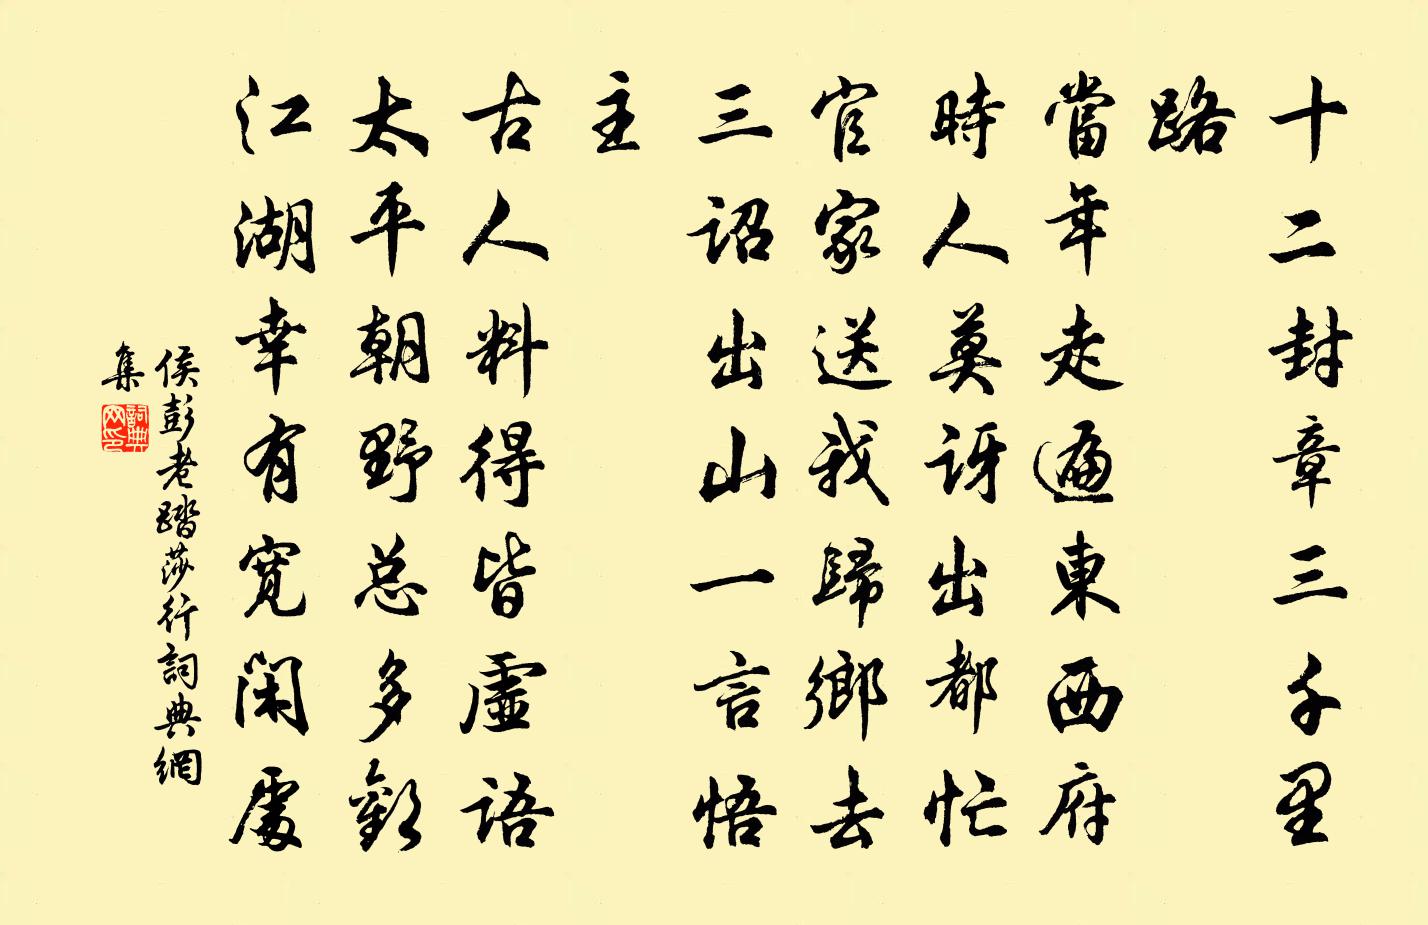 十二封章三千里
路
當年走遍東西府
時人莫訝出都忙
官家送我歸鄉去
三詔出山一言悟
主
古人料得皆虛語
太平朝野总多歡
江湖幸有寬閑處
侯彭老踏莎行詞典網
集
詞典网印